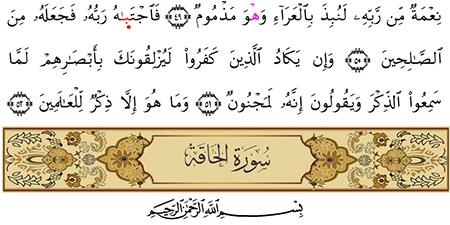 نِعْمَةٌ مِّن رَّبِّهِۦ لَنُبِذَ بِٱلْعَرَآءِ وَهُوَ مَذْمُومٌ ﴿٤٩﴾ فَٱجْتَبَٰهُ رَبُّهُۥ فَجَعَلَهُۥ مِنَ
ٱلصَّٰلِحِينَ ﴿٥٠﴾ وَإِن يَكَادُ ٱلَّذِينَ كَفَرُوا۟ لَيُزْلِقُونَكَ بِأَبْصَٰرِهِمْ لَمَّا
سَمِعُوا۟ ٱلذِّكْرَ وَيَقُولُونَ إِنَّهُۥ لَمَجْنُونٌ ﴿٥١﴾ وَمَا هُوَ إِلَّا ذِكْرٌ لِّلْعَٰلَمِينَ ﴿٥٢﴾
سُورَةُ الحَاقَّةِ
بِسْمِ ٱللَّهِ ٱلرَّحْمَٰنِ ٱلرَّحِيمِ